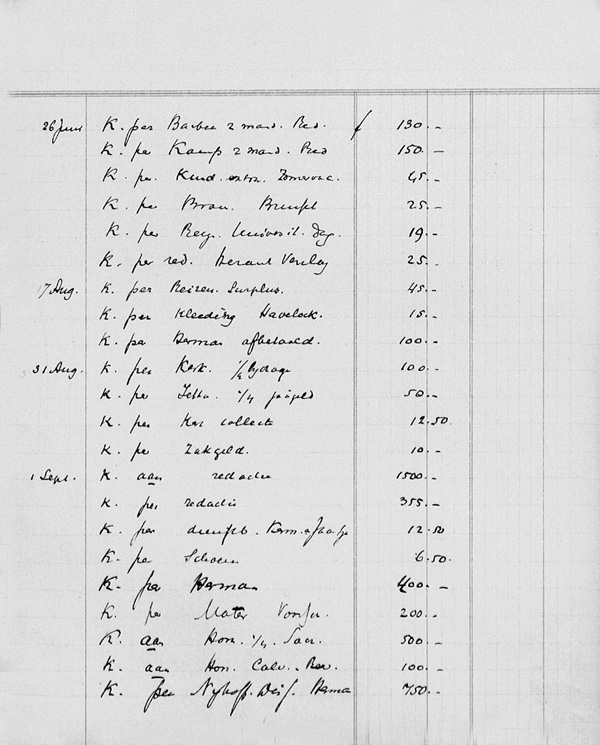 26 Juni K. per Barbee 2 maand. Red. f 130.-
K. per Kamp 2 maand. Red 150.-
K. per Kind. extra. Zomervac. 65.-
K. per Brom. 25.-
K. per Rey. Universit. Dag. 19.-
K. per red. Heraut Verslag 25.-
17 Aug. K. per Reizen. Surplus. 45.-
K. per Kleeding Havelock. 15.-
K. per Herman afbetaald. 100.-
31 Aug. K. per Kerk. 1/4 bydrage 100.-
K. per 1/4 jaargeld 50.-
K. per Kerk collecte 12.50
K. per Zakgeld. 10.-
1 Sept. K. aan redactie 1500.-
K. per redactie 355.-
K. per dienstb. Herm. 12.50
K. per Schoen 6.50.
K. per Herman 400.-
K. per 200.-
K. aan Hon. 1/4. 500.-
K. aan Hon. Calv. Rev. 100.-
K. per Nyhoff. Herma 750.-